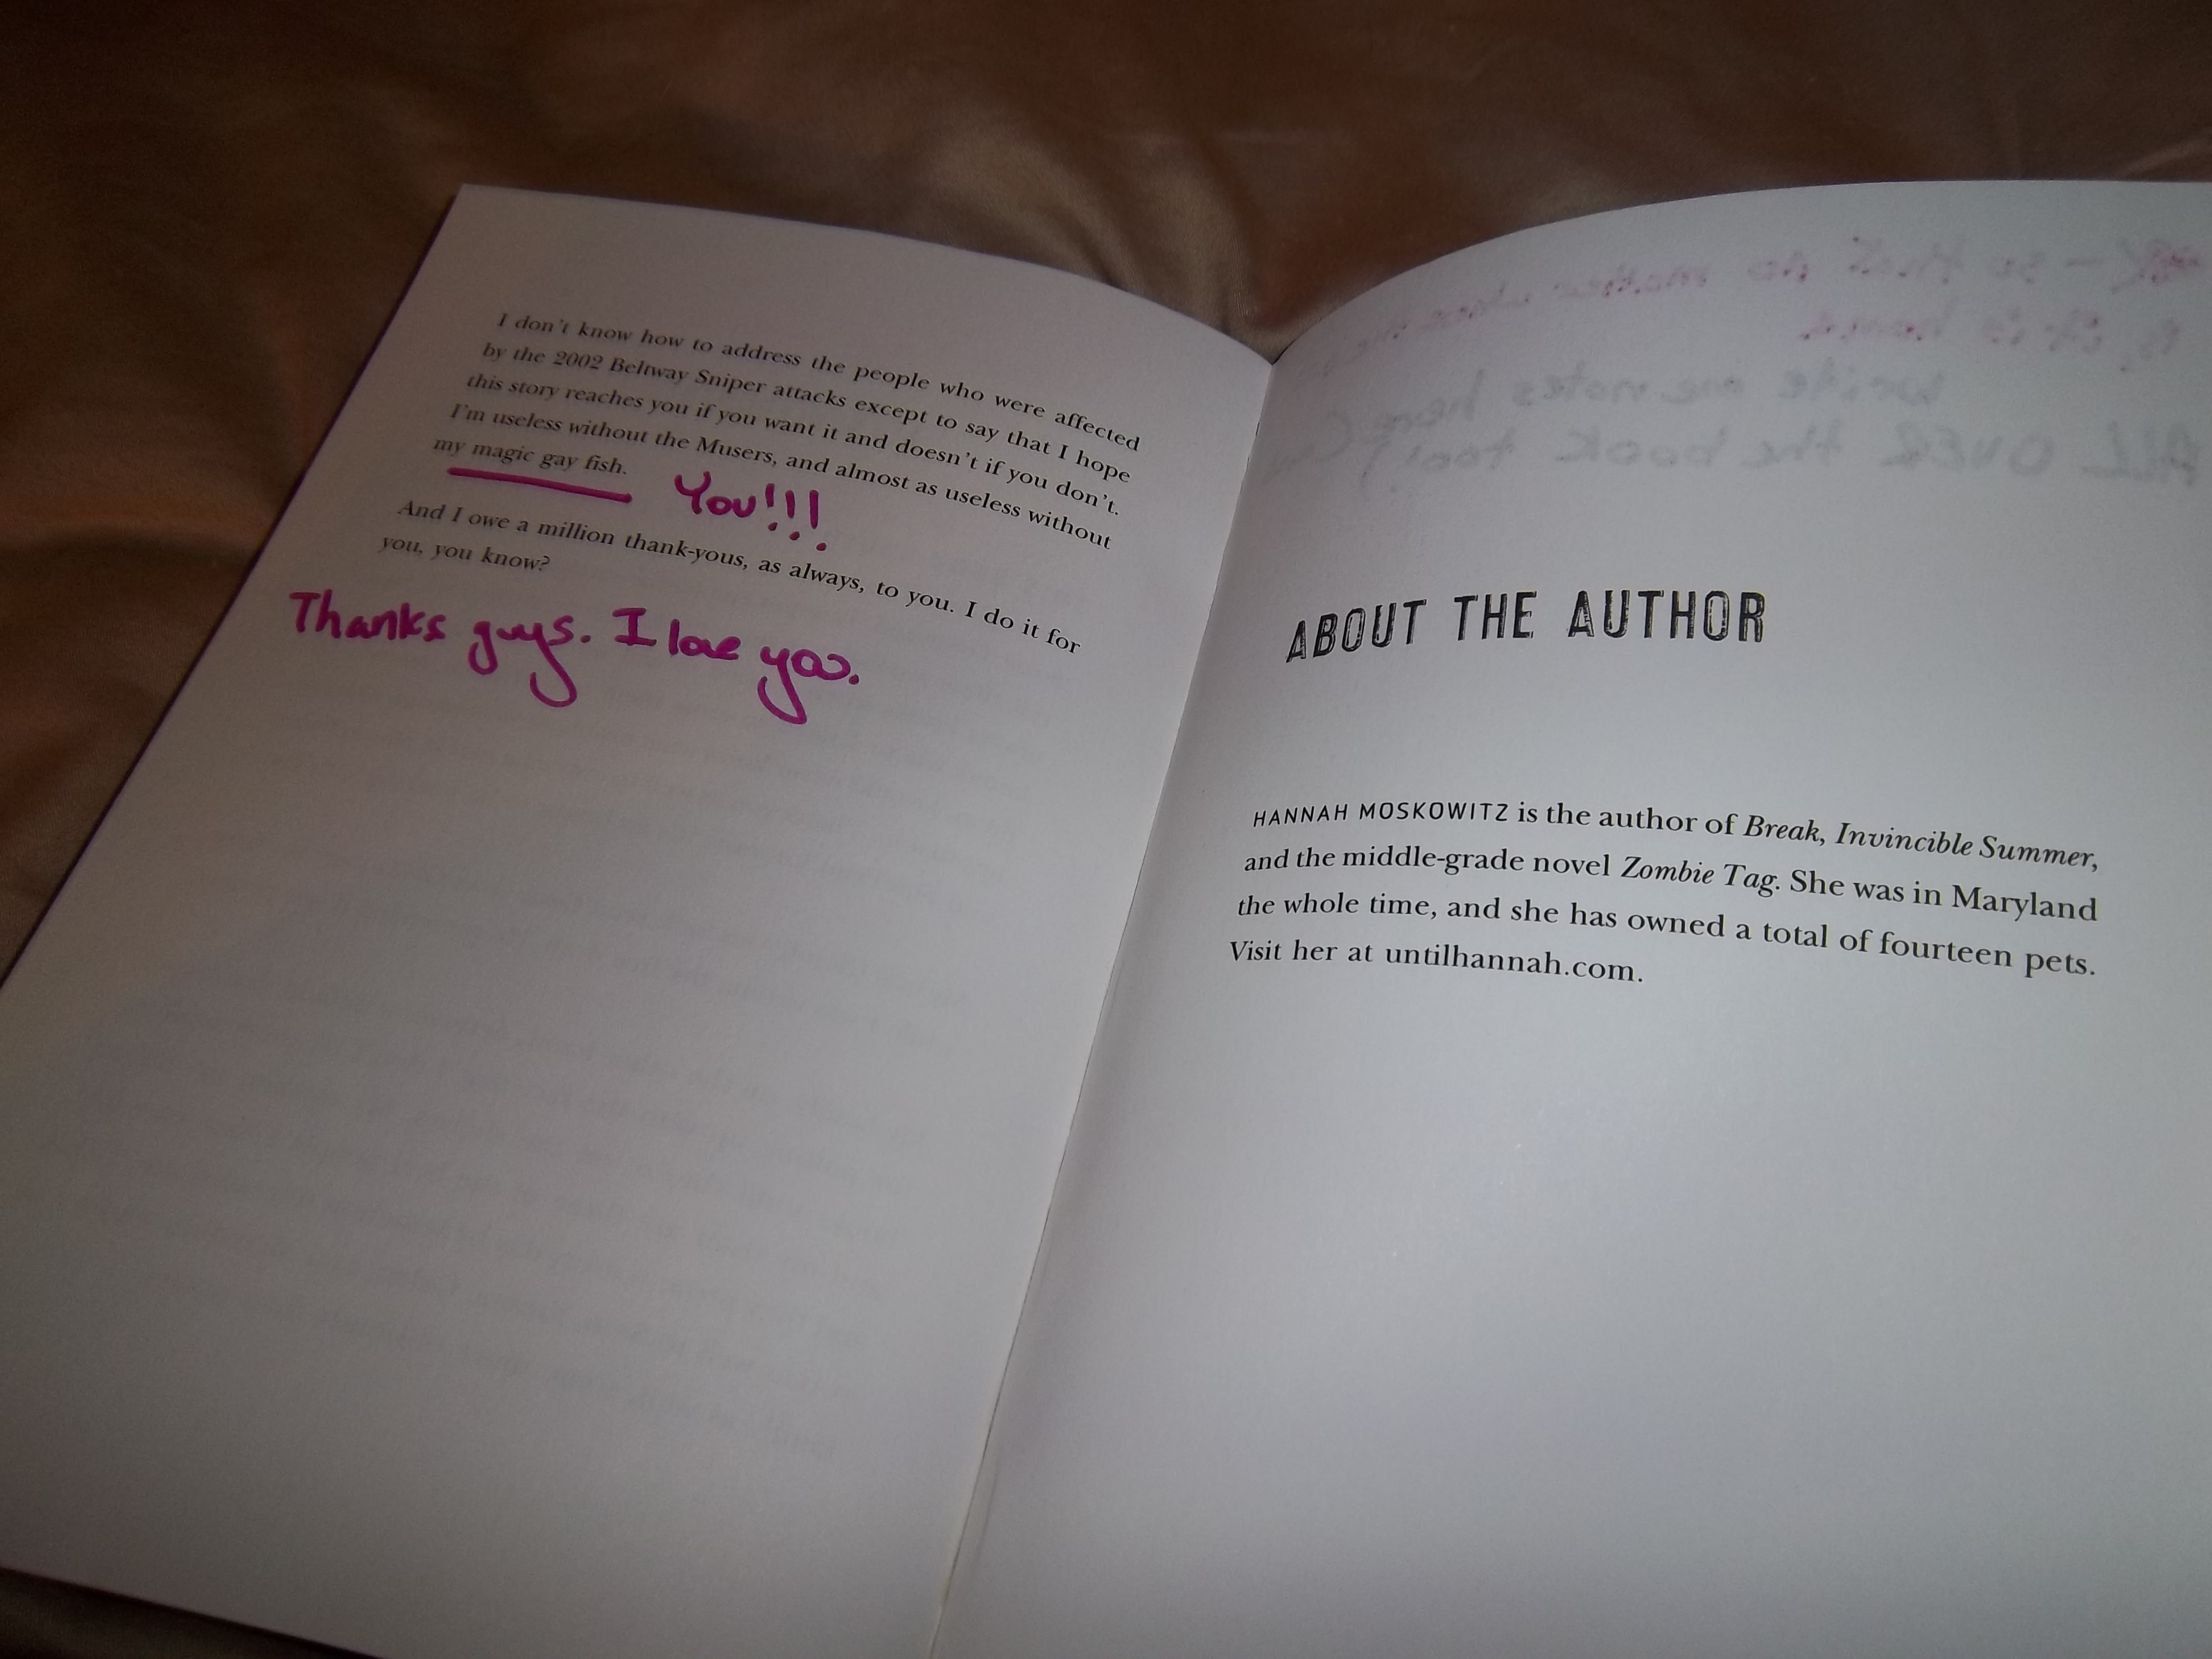 I don't know how to address the people who were affected
by the 2002 Beltway Sniper attacks except to say that I hope
this story reaches you if you want it and doesn't if you don't.
I'm useless without the Musers, and almost as useless without
my magic gay fish.
You!!!
And I owe a million thank-yous, as always, to you. I do it for
you, you know?
Thanks guys. I love you.
so that no matter where
is home.
write me notes here
ALL OVER the book too!)
ABOUT THE AUTHOR
HANNAH MOSKOWITZ is the author of Break, Invincible Summer,
and the middle-grade novel Zombie Tag. She was in Maryland
the whole time, and she has owned a total of fourteen pets.
Visit her at untilhannah.com.